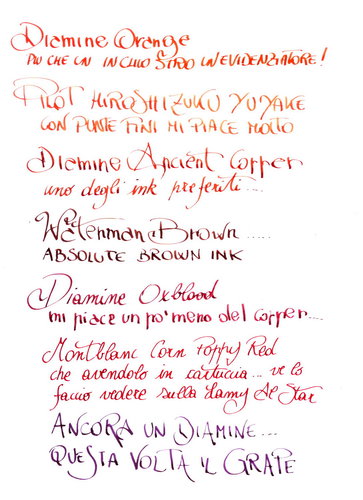 Diamine Orange
PIÙ CHE UN INCHIOSTRO UN EVIDENZIATORE!
PILOT HIROSHIZUKU YUYAKE
CON PUNTE FINI MI PIACE MOLTO
Diamine Ancient Copper
uno degli ink preferiti....
Waterman Brown .....
ABSOLUTE BROWN INK
Diamine Oxblood
mi piace un po' meno del copper....
Montblanc Corn Poppy Red
che avendolo in cartuccia... ve lo
faccio vedere sulla Lamy Al Star
ANCORA UN DIAMINE....
QUESTA VOLTA IL GRAPE